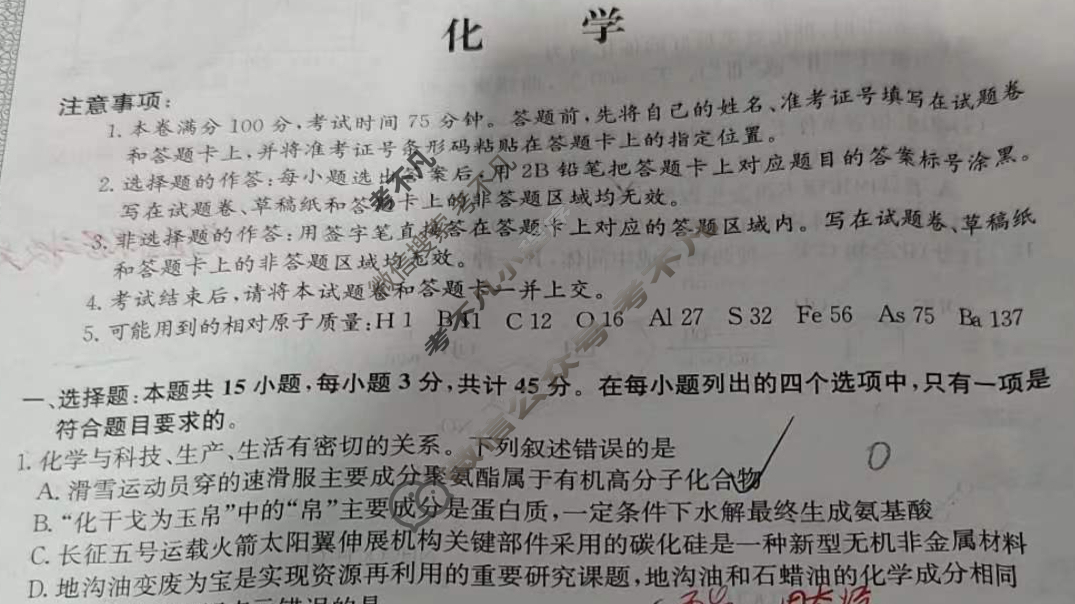 化 学
注意事项：
1. 本卷满分 100 分,考试时间 75 分钟。答题前,先将自己的姓名、准考证号填写在试题卷
和答题卡上,并将准考证号条形码粘贴在答题卡上的指定位置。
2. 选择题的作答:每小题选出答案后,用 2B 铅笔把答题卡上对应题目的答案标号涂黑。
写在试题卷、草稿纸和答题卡上的非答题区域均无效。
3. 非选择题的作答:用签字笔直接答在答题卡上对应的答题区域内。写在试题卷、草稿纸
和答题卡上的非答题区域均无效。
4. 考试结束后,请将本试题卷和答题卡一并上交。
5. 可能用到的相对原子质量:H 1 B 11 C 12 O 16 Al 27 S 32 Fe 56 As 75 Ba 137
一、选择题:本题共 15 小题,每小题 3 分,共计 45 分。在每小题列出的四个选项中,只有一项是
符合题目要求的。
1. 化学与科技、生产、生活有密切的关系。下列叙述错误的是
A. 滑雪运动员穿的速滑服主要成分聚氨酯属于有机高分子化合物
B. “化干戈为玉帛”中的“帛”主要成分是蛋白质,一定条件下水解最终生成氨基酸
C. 长征五号运载火箭太阳翼伸展机构关键部件采用的碳化硅是一种新型无机非金属材料
D. 地沟油变废为宝是实现资源再利用的重要研究课题,地沟油和石蜡油的化学成分相同